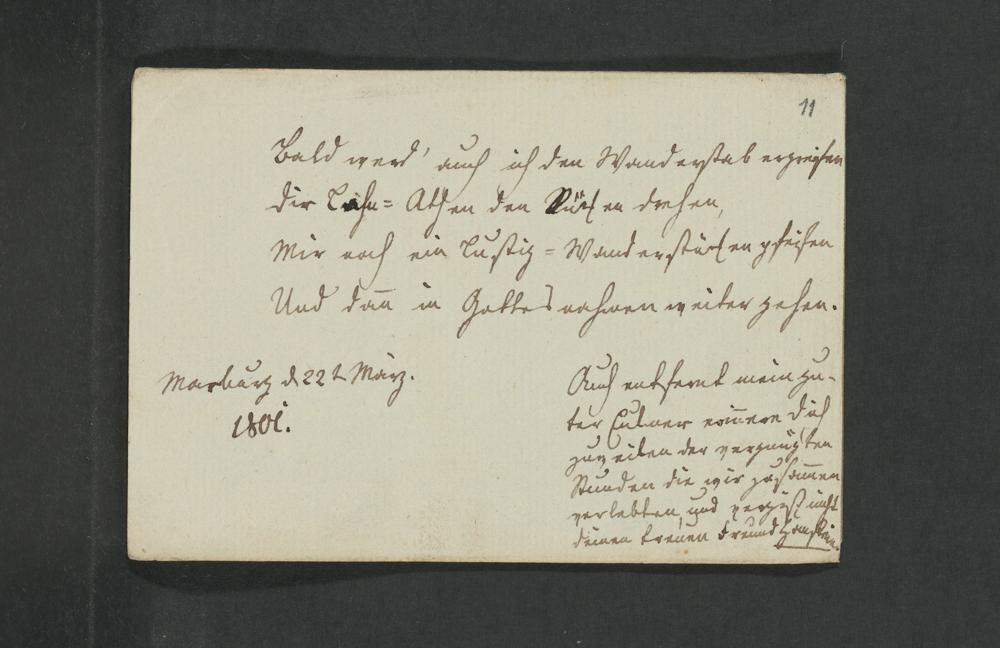 11
Bald werd' auch ich den Wanderstab ergreifen
Der Lahn = Athen den Rücken drehen,
Mir noch ein Lustig = Wanderstückchen pfeifen
Und dan̅ in Gottes nahmen weiter gehen.
Marburg d 22t März.
1801.
Auch entfernt mein gu-
ter erin̅ere Dich
zuweilen der vergnügten
Stunden die wir zusam̅en
verlebten, und vergiß nicht
deinen treuen Freund